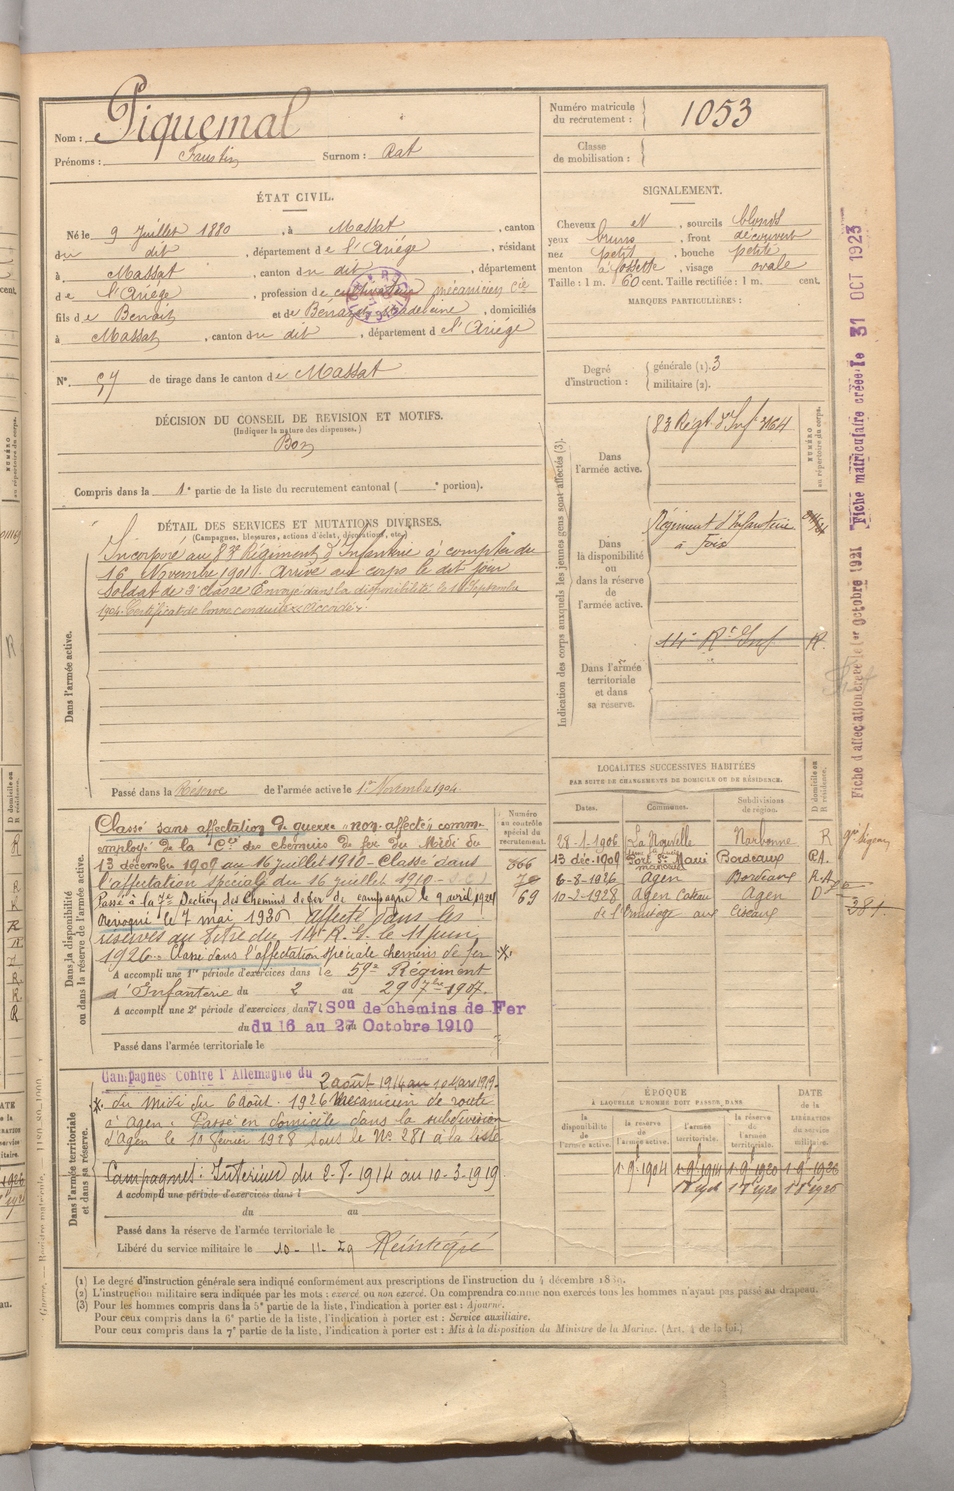 Nom : Piquemal
Prénoms : Faustin Surnom : Rat
Numéro matricule du recrutement : 1053
Classe de mobilisation :
ÉTAT CIVIL.
Né le 9 Juillet 1880, à Massat, canton
du dit, département de l'Ariége, résidant
à Massat, canton du dit, département
de l'Ariége, profession de cultivateur mécanicien Cie
fils de Benoit et de Madeleine, domiciliés
à Massat, canton du dit, département de l'Ariége
N° 57 de tirage dans le canton de Massat
SIGNALEMENT.
Cheveux et, sourcils blonds
yeux bruns, front découvert
nez petit, bouche petite
menton à fossette, visage ovale
Taille : 1 m. 60 cent. Taille rectifiée : 1 m. cent.
MARQUES PARTICULIÈRES :
Degré d'instruction : générale (1). 3
militaire (2).
DÉCISION DU CONSEIL DE REVISION ET MOTIFS.
(Indiquer la nature des dispenses.)
Bon
Compris dans la 1e partie de la liste du recrutement cantonal ( e portion).
DÉTAIL DES SERVICES ET MUTATIONS DIVERSES.
(Campagnes, blessures, actions d'éclat, décorations, etc.)
Dans l'armée active.
Incorporé au 83e Régiment d'Infanterie à compter du
16 Novembre 1901. Arrivé au corps le dit jour
Soldat de 2e classe Envoyé dans la disponibilité le 18 Septembre
1904. Certificat de bonne conduite Accordé.
Passé dans la Réserve de l'armée active le 1er Novembre 1904
Indication des corps auxquels les jeunes gens sont affectés (3).
NUMÉRO au répertoire du corps.
Dans l'armée active.
83 Régt d'Inf 3164
Dans la disponibilité ou dans la réserve de l'armée active.
Régiment d'Infanterie
à Foix
Dans l'armée territoriale et dans sa réserve.
14e Rt Inf R.
Fiche d'affectation créée le 1er octobre 1921 Fiche matriculaire créée le 31 OCT 1923
Dans la disponibilité ou dans la réserve de l'armée active.
Numéro au contrôle spécial du recrutement.
Classé sans affectation de guerre "non affecté" comme
employé de la Cie des chemins de fer du Midi du
13 décembre 1909 au 16 juillet 1910 - Classé dans 366
l'affectation spéciale du 16 juillet 1910 -
Passé à la 7e Section des Chemins de fer de campagne le 9 avril 1924 69
Affecté dans les
réserves au titre du 14e R. G. le 11 juin
1926. Classé dans l'affectation spéciale chemins de fer *
A accompli une 1re période d'exercices dans le 59e Régiment
d'Infanterie du 2 au 29 7bre 1907.
A accompli une 2e période d'exercices dans 7e Son de chemins de Fer
du 16 au 27 Octobre 1910
Passé dans l'armée territoriale le
LOCALITÉS SUCCESSIVES HABITÉES
PAR SUITE DE CHANGEMENTS DE DOMICILE OU DE RÉSIDENCE.
Dates. Communes. Subdivisions de région. D domicile ou R résidence.
28-1-1906 La Nouvelle Narbonne R
13 déc-1909 Port Ste Marie Bordeaux RA.
6-8-1926 Agen Bordeaux R.A
10-2-1928 Agen Coteau Agen D
de l'Ermitage aux
381.
Dans l'armée territoriale et dans sa réserve.
Campagnes Contre l'Allemagne du 2 août 1914 au 10 Mars 1919-
* du Midi du 6 Août. 1926 Mécanicien de route
à Agen. Passé en domicile dans la subdivision
d'Agen le 10 février 1928 sous le No 281 à la liste
Campagnes : Intérieur du 2-8-1914 au 10-3-1919
A accompli une période d'exercices dans l
du au
Passé dans la réserve de l'armée territoriale le
Libéré du service militaire le 10-11-29
ÉPOQUE
À LAQUELLE L'HOMME DOIT PASSER DANS
la disponibilité de l'armée active. la réserve de l'armée active. l'armée territoriale. la réserve de l'armée territoriale. DATE de la LIBÉRATION du service militaire.
1-9-1904 1-9-1914 1-9-1920 1-9-1926
(1) Le degré d'instruction générale sera indiqué conformément aux prescriptions de l'instruction du 4 décembre 1889.
(2) L'instruction militaire sera indiquée par les mots : exercé ou non exercé. On comprendra comme non exercés tous les hommes n'ayant pas passé au drapeau.
(3) Pour les hommes compris dans la 5e partie de la liste, l'indication à porter est : Ajourné.
Pour ceux compris dans la 6e partie de la liste, l'indication à porter est : Service auxiliaire.
Pour ceux compris dans la 7e partie de la liste, l'indication à porter est : Mis à la disposition du Ministre de la Marine. (Art. 4 de la loi.)